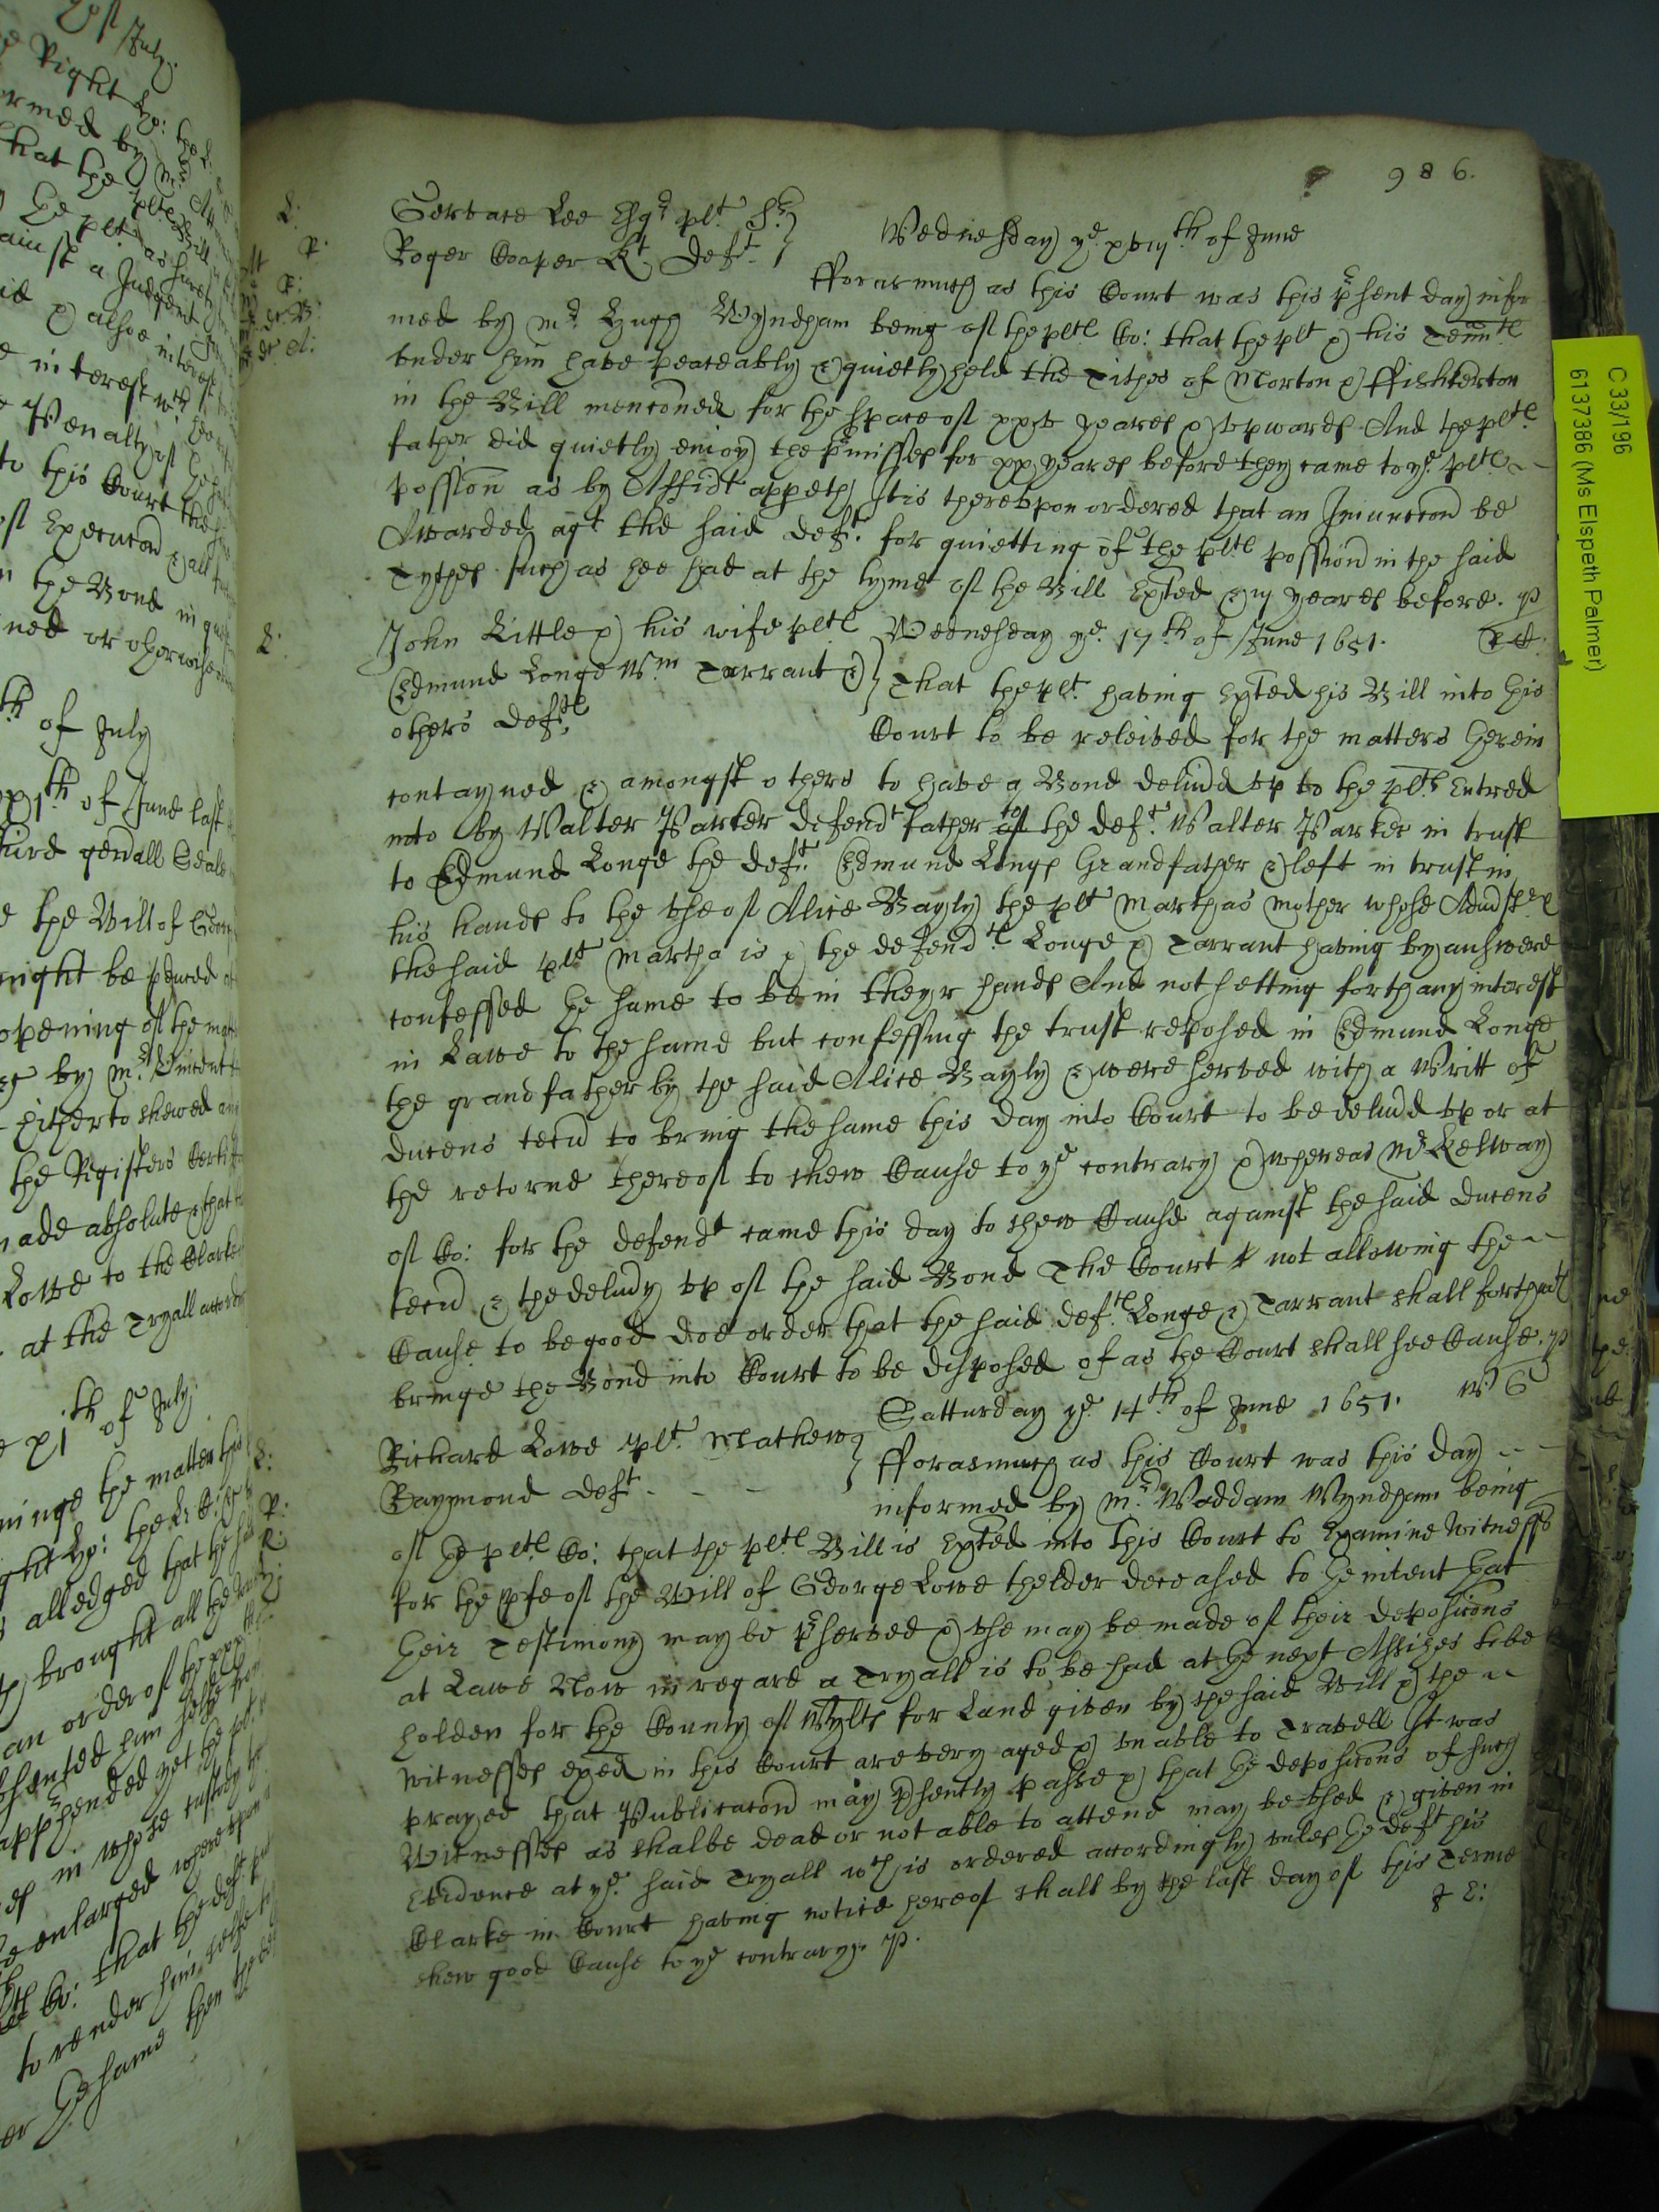 986.
L:
Gervace Lee Esqr plt Sr
Roger Cooper Kt Deft
Wednesday ye xviijth of June
fforasmuch as this Court was this psent day infor
med by Mr Hugh Wyndham being of the pltes Co: that the plt & his Tennntes
vnder him have peaceably & quietly held the Tithes of Morton & ffiskerton
in the Bill menconed for the space of xxv yeares & vpwardes And the pltes
father did quietly enioy the pmisses for xx yeares before they came to ye pltes
possion as by Affidt appeth It is therevpon ordered that an Iniunccon be
Awarded agt the said Deft. for quietting of the pltes possion in the said
Tythes such as hee had at the tyme of the Bill Exted & iij yeares before. p
John Little & his wife pltes
Edmund Longe Wm Tarrant &
others Deftes
Wednesday ye 17th of June 1651.
That the plt having Exted his Bill into this
Court to be releived for the matters therein
contayned & amongst others to have a Bond delivd vp to the plts Entred
into by Walter Parker Defendt father to the Deft Walter Parker in trust
to Edmund Longe the Deft Edmund Longes Grandfather & left in trust in
his handes to the vse of Alice Bayly the plt Marthas Mother whose
the said plt Martha is & the defendtes Longe & Tarrant having by answere
confessed the same to be in theyr handes And not setting forth any interest
in Lawe to the same but confessing the trust reposed in Edmund Longe
the grandfather by the said Alice Bayly & were served with a Writt of
Ducens tecu to bring the same this day into Court to be delivd vp or at
the retorne thereof to shew Cause to ye contrary & whereas Mr Kelway
of Co: for the defendt came this day to shew Cause against the said Ducens
tecu & the delivy vp of the said Bond The Court not allowing the
Cause to be good doe order that the said Deftes Longe & Tarrant shall forthwth
bringe the Bond into Court to be disposed of as the Court shall see Cause. p
L:
W G
Richard Lowe plt. Mathew
Raymond Deft
Satturday ye 14th of June 1651.
fforasmuch as this Court was this day
informed by Mr Waddam Wyndham being
of the pltes Co: that the pltes Bill is Exted into this Court to Examine Witnesses
for the pfe of the Will of George Lowe thelder deceased to the intent that
their Testimony may be pserved & vse may be made of their deposicons
at Lawe Now in regard a Tryall is to be had at the next Assizes to be
holden for the County of Wyltes for Land given by the said Will & the
Witnesses exed in this Court are very aged & vnable to Travell It was
prayed that Publicacon may psently passe & that the deposicons of such
Witnesses as shalbe dead or not able to attend may be vsed & given in
Evidence at ye said Tryall wch is ordered accordingly vnles the deft his
Clarke in Court having notice hereof shall by the last day of this Terme
shew good Cause to ye contrary. p.
J E:
C 33/196
6137386 (Ms Elspeth Palmer)
of July
xxith of June last
the Will of
opening of the
hitherto shewed
the Registers
made absolute & that
Lowe to the Clarke
at the Tryall
xjth of July
alledged that the
brought all the
an order of the
in whose custody
be enlarged wherevpon
Co: that the deft
to render himselfe
the same then